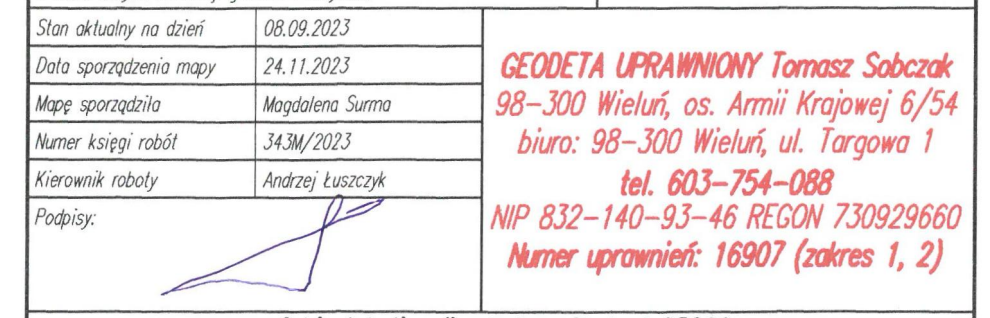 Stan aktualny na dzień 08.09.2023
Data sporządzenia mapy 24.11.2023
Mapę sporządziła Magdalena Surma
Numer księgi robót 343M/2023
Kierownik roboty Andrzej Łuszczyk
Podpisy:
GEODETA UPRAWNIONY Tomasz Sobczak
98-300 Wieluń, os. Armii Krajowej 6/54
biuro: 98-300 Wieluń, ul. Targowa 1
tel. 603-754-088
NIP 832-140-93-46 REGON 730929660
Numer uprawnień: 16907 (zakres 1, 2)